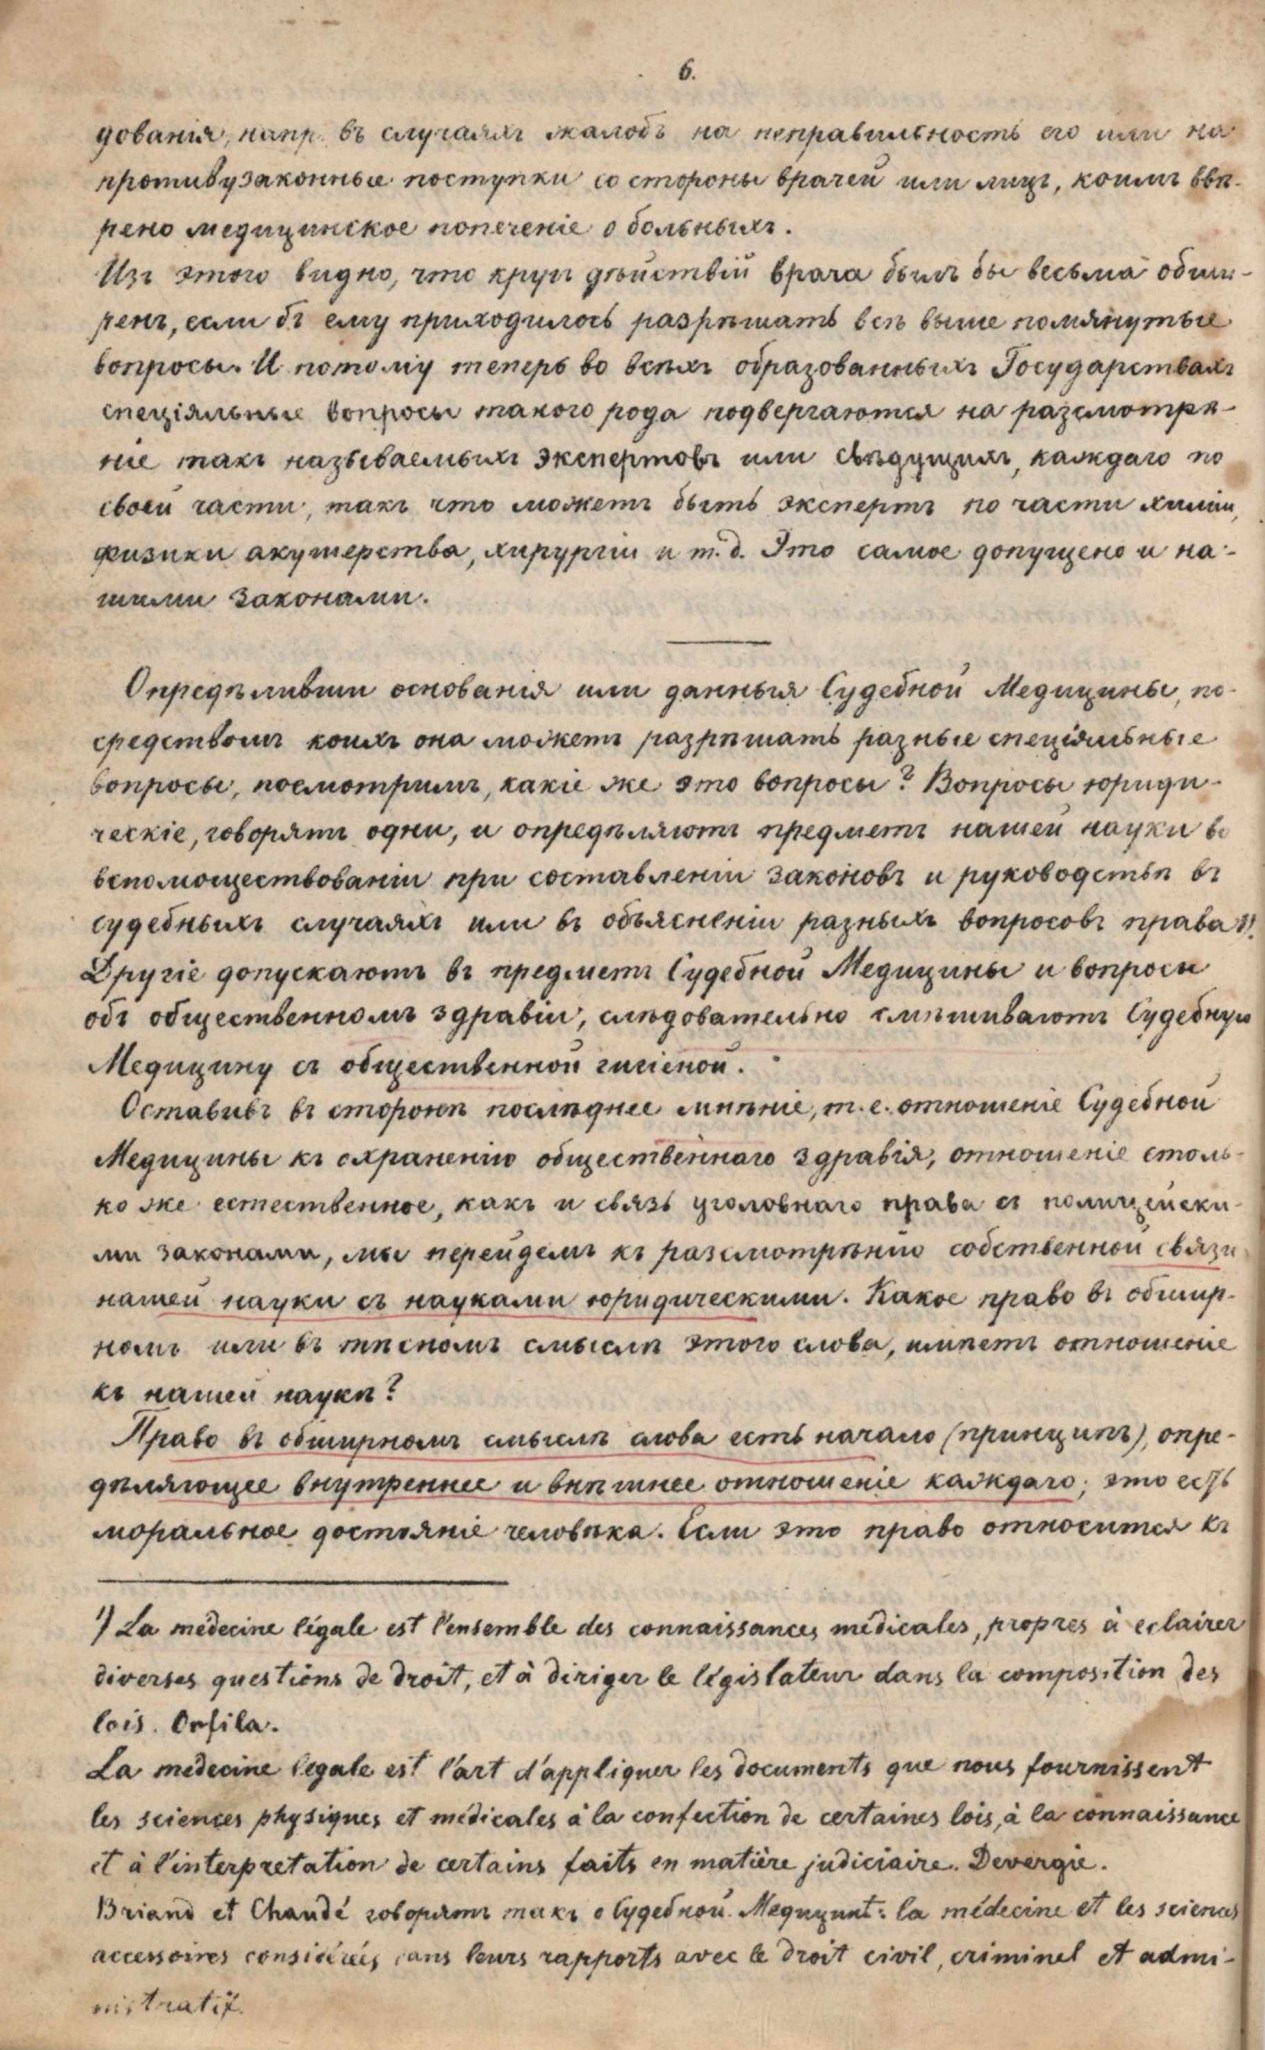 6.
дованія, напр. въ случаяхъ жалобъ на неправильность его или на
противузаконные поступки со стороны врачей или лицъ, коимъ ввѣ-
рено медицинское попеченіе о больныхъ.
Изъ этого видно, что кругъ дѣйствій врача былъ бы весьма обши-
ренъ, если бъ ему приходилось разрѣшать всѣ выше помянутые
вопросы. И потому теперь во всѣхъ образованныхъ Государствахъ
спеціяльные вопросы такого рода подвергаются на разсмотрѣ-
ніе такъ называемыхъ экспертовъ или свѣдущихъ, каждаго по
своей части, такъ что можетъ быть экспертъ по части химіи,
физики акушерства, хирургіи и т.д. Это самое допущено и на-
шими законами.
Опредѣливши основанія или данныя Судебной Медицины, по-
средствомъ коихъ она можетъ разрѣшать разные спеціяльные
вопросы, посмотримъ, какіе же это вопросы? Вопросы юриди-
ческіе, говорятъ одни, и опредѣляютъ предметъ нашей науки во
вспомоществованіи при составленіи законовъ и руководствѣ въ
судебныхъ случаяхъ или въ объясненіи разныхъ вопросовъ права 1).
Другіе допускаютъ въ предметъ Судебной Медицины и вопросы
объ общественномъ здравіи, слѣдовательно смѣшиваютъ Судебную
Медицину съ общественной гигіеной.
Оставивъ въ сторонѣ послѣднее мнѣніе, т.е. отношеніе Судебной
Медицины къ охраненію общественнаго здравія, отношеніе столь-
ко же естественное, какъ и связь уголовнаго права съ полицейски-
ми законами, мы перейдемъ къ разсмотрѣнію собственной связи
нашей науки съ науками юридическими. Какое право въ обшир-
номъ или въ тѣсномъ смыслѣ этого слова, имѣетъ отношеніе
къ нашей наукѣ?
Право въ обширномъ смыслѣ слова есть начало (принципъ), опре-
дѣляющее внутреннее и внѣшнее отношеніе каждаго; это есть
моральное достояніе человѣка. Если это право относится къ
1) La médecine légale est l'ensemble des connaissances médicales, propres à eclairer
diverses questions de droit, et à diriger le législateur dans la composition des
lois. Orfila.
La medecine legale est l'art d'appliquer les documents que nous fournissent
les sciences physiques et médicales à la confection de certaines lois, à la connaissance
et à l'interpretation de certains faits en matière judiciaire. Devergie.
Briand et Chaudé говорятъ такъ о Судебной Медицинѣ: la médecine et les sciences
accessoires considérées dans leurs rapports avec le droit civil, criminel et admi-
nistratif.